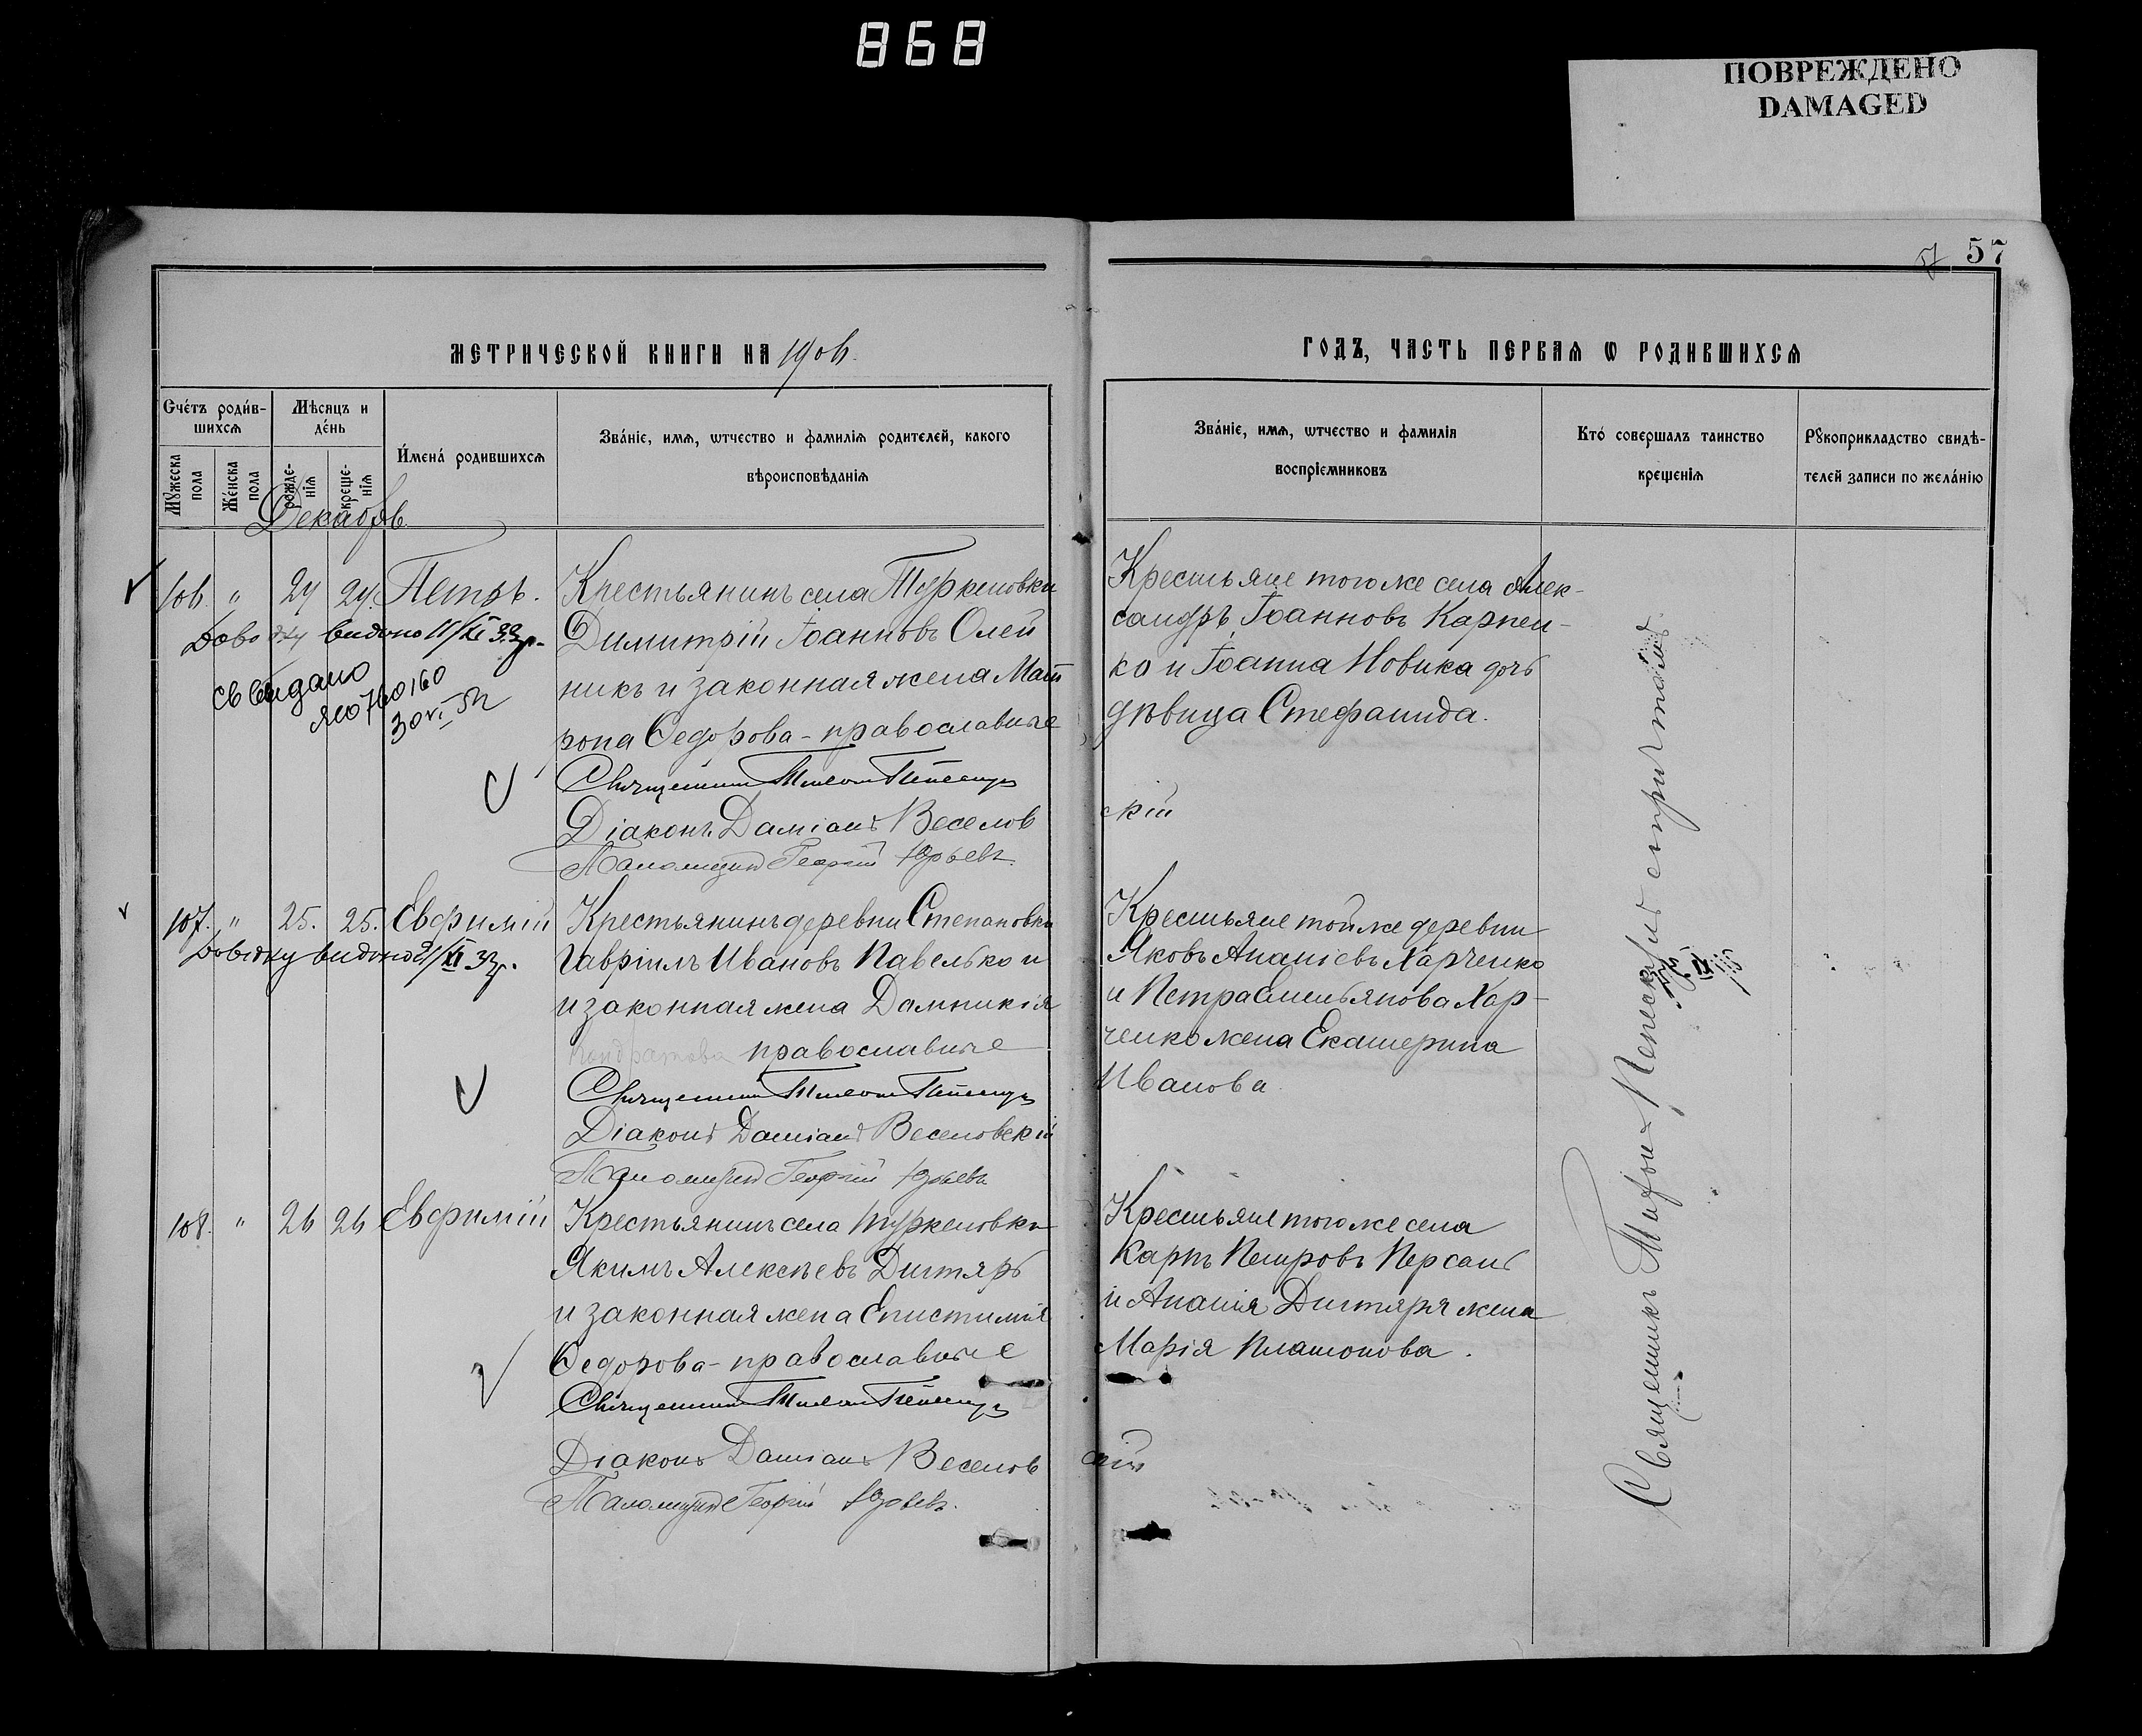 868
ПОВРЕЖДЕНО
DAMAGED
57
57
МЕТРИЧЕСКОЙ КНИГИ НА 1906.
ГОДЪ, ЧАСТЬ ПЕРВАѦ Ѡ РОДИВШИХСѦ
Счéтъ роди́в-
шихсѧ
Мѣсяцъ и
дéнь
Мꙋжеска
пола
Жéнска
пола
рожде-
нїѧ
креще-
нїѧ
И҆мена́ родившихсѧ
Зва́нїе, имѧ, ѡтчество и фамилїѧ родителей, какого
вѣроисповѣданїѧ
Зва́нїе, имѧ, ѡтчество и фамилїѧ
воспрїемниковъ
Кто́ совершалъ таинство
крещенїѧ
Рꙋкоприкладство свидѣ-
телей записи по жела́нїю
Декабрь.
106. " 24 24. Петръ.
Довідку видано 11/XI 33р.
Св видано
ЯЮ 760160
30 VI
Крестьянинъ села Туркеновки
Димитрій Іоанновъ Олей
никъ и законная жена Мат
рона Ѳедорова - православные
Священникъ
Діаконъ Даміанъ Веселов
Псаломщикъ Георгій Юрьевъ.
Крестьяне того же села Алек-
сандръ Іоанновъ Карпен-
ко и Іоанна Новика дочь
дѣвица Стефанида.
скій
107. " 25. 25. Евфимій
Довідку видано 21/XI 33р.
Крестьянинъ деревни Степановки
Гавріилъ Ивановъ Павелько и
и законная жена Домникія
Кондратова православные
Священникъ
Діаконъ Даміанъ Веселовскій
Псаломщикъ Георгій Юрьевъ
Крестьяне той же деревни
Яковъ Ананіевъ Харченко
и Петра Емельянова Хар-
ченко жена Екатерина
Иванова.
108. " 26 26 Евфимій
Крестьянинъ села Туркеновки
Якимъ Алексѣевъ Дигтярь
и законная жена Епистимія
Ѳедорова - православные
Священникъ
Діаконъ Даміанъ Веселов
Псаломщикъ Георгій Юрьевъ.
Крестьяне того же села
Карпъ Петровъ Персанъ
и Ананія Дигтяря жена
Марія Платонова.
скій
Священникъ